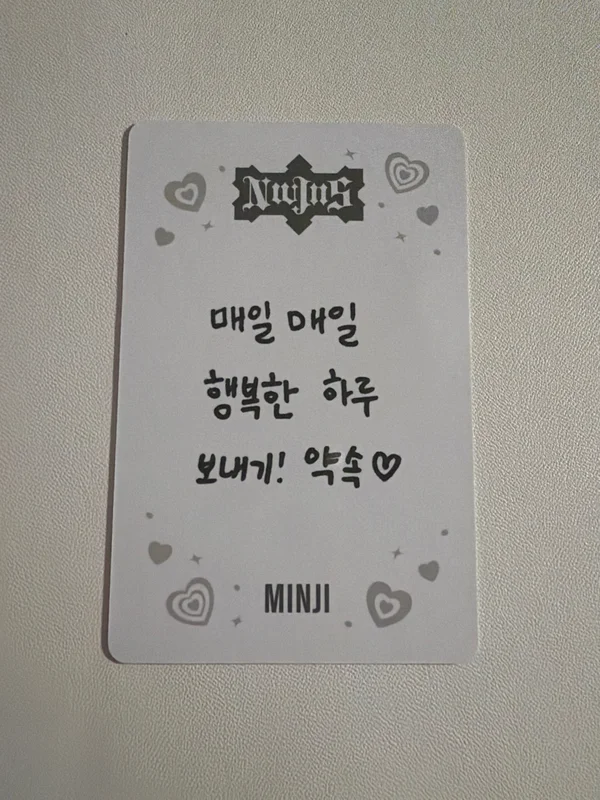 NewJeans
매일 매일
행복한 하루
보내기! 약속♡
MINJI